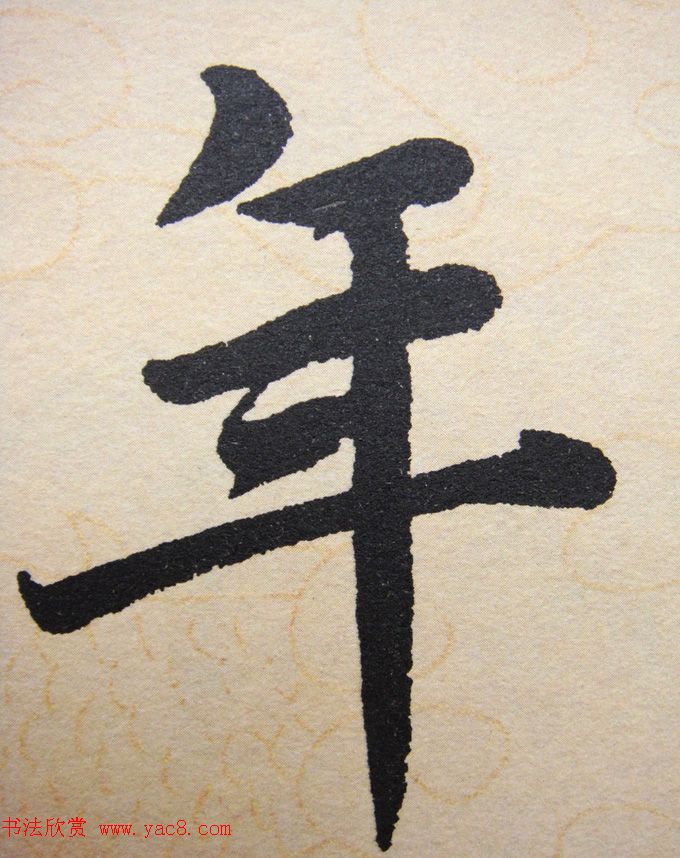 年
书法欣赏 www.yac8.com